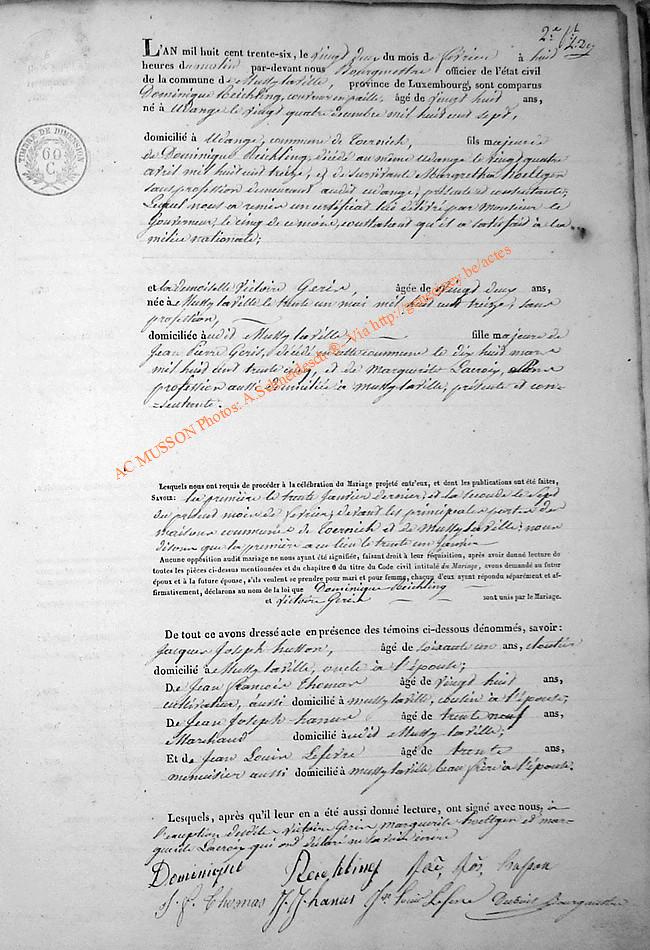 2.e f.t
L'AN mil huit cent trente-six, le vingt deux du mois de février à huit
heures du matin par-devant nous Bourgmestre officier de l'état civil
de la commune de Mussy la ville, province de Luxembourg, sont comparus
Dominique Reichling, couvreur en paille, âgé de vingt huit ans,
né à Udange le vingt quatre décembre mil huit cent sept,
domicilié à Udange, commune de Toernich, fils majeur de
de Dominique Reichling, décédé au même Udange le vingt quatre
avril mil huit cent treize, et de survivante Margretha Hoeltgen
sans profession demeurant audit udange, présente et consentante;
Lequel nous a remis un certificat lui délivré par Monsieur le
Gouverneur, le cinq de ce mois, constatant qu'il a satisfait à la
milice nationale;
et la demoiselle Victoire Gérin, âgée de vingt deux ans,
née à Mussy la ville le trente un mai mil huit cent treize, sans
profession,
domiciliée audit Mussy la ville, fille majeure de
Jean Pierre Gérin, décédé en cette commune le dix huit mars
mil huit cent trente cinq, et de Marguerite Lacroix, sans
profession aussi domiciliée à mussy la ville, présente et con-
-sentante.
Lesquels nous ont requis de procéder à la célébration du Mariage projeté entr'eux, et dont les publications ont été faites,
SAVOIR: la première le trente Janvier dernier, et la seconde le sept
du présent mois de février, devant les principales portes des
maisons communes de Toernich et de Mussy la ville; nous
disons que la première a eu lieu le trente un Janvier
Aucune opposition audit mariage ne nous ayant été signifiée, faisant droit à leur réquisition, après avoir donné lecture de
toutes les pièces ci-dessus mentionnées et du chapitre 6 du titre du Code civil intitulé du Mariage, avons demandé au futur
époux et à la future épouse, s'ils veulent se prendre pour mari et pour femme, chacun d'eux ayant répondu séparément et af-
firmativement, déclarons au nom de la loi que Dominique Reichling
et Victoire Gérin sont unis par le Mariage.
De tout ce avons dressé acte en présence des témoins ci-dessous dénommés, savoir:
Jacques Joseph husson, âgé de soixante un ans, cloutier
domicilié à Mussy la ville, oncle à l'épouse;
De Jean françois Thomas âgé de vingt huit ans,
cultivateur, aussi domicilié à mussy la ville, cousin à l'épouse;
De Jean Joseph hanus âgé de trente neuf ans,
Marchand domicilié audit Mussy la ville;
Et de Jean Louis Lefevre âgé de trente ans,
menuisier aussi domicilié à mussy la ville, beau frère à l'épouse.
Lesquels, après qu'il leur en a été aussi donné lecture, ont signé avec nous, à
l'exception de ladite Victoire Gérin, Marguerite hoeltgen et mar-
guerite Lacroix qui ont déclaré ne savoir écrire
Dominique Reichling Jac. Jos. husson
J. f. Thomas J. J. hanus Jn Louis Lefevre Dubois Bourgmestre
TIMBRE DE DIMENSION
60
C.
AC MUSSON Photos: A.Schneidesch ®- Via http://gaugeney.be/actes